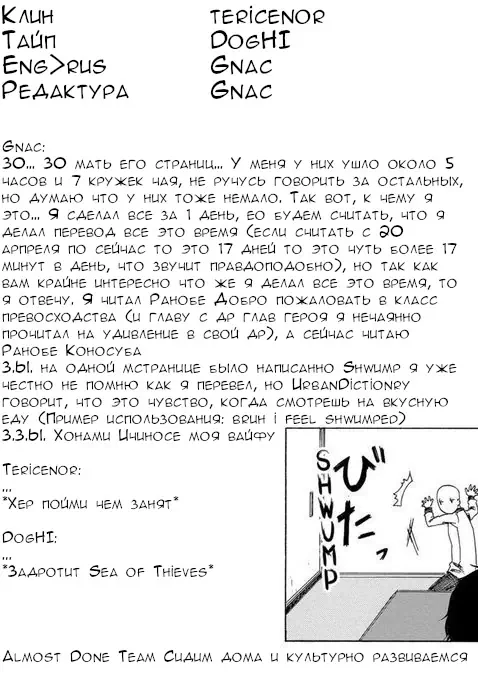 Клин TERICENOR
Тайп DogHI
Eng>rus Gnac
Редактура Gnac
Gnac:
30... 30 мать его страниц... У меня у них ушло около 5
часов и 7 кружек чая, не ручусь говорить за остальных,
но думаю что у них тоже немало. Так вот, к чему я
это... Я сделал все за 1 день, ео будем считать, что я
делал перевод все это время (если считать с 20
арпреля по сейчас то это 17 дней то это чуть более 17
минут в день, что звучит правдоподобно), но так как
вам крайне интересно что же я делал все это время, то
я отвечу. Я читал Ранобе Добро пожаловать в класс
превосходства (и главу с др глав героя я нечаянно
прочитал на удивление в свой др), а сейчас читаю
Ранобе Коносуба
З.Ы. на одной мстранице было написанно Shwump я уже
честно не помню как я перевел, но UrbanDictionry
говорит, что это чувство, когда смотрешь на вкусную
еду (Пример использования: bruh i feel shwumped)
З.З.Ы. Хонами Ичиносе моя вайфу
Tericenor:
...
*Хер пойми чем занят*
DogHI:
...
*Задротит Sea of Thieves*
SHWUMP
びたっ
Almost Done Team Сидим дома и культурно развиваемся